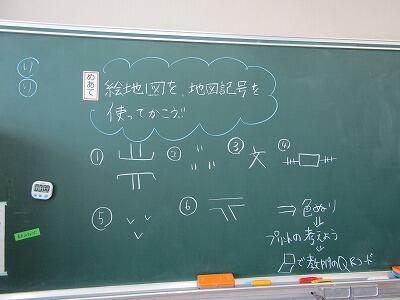 り
り
めあて
絵地図を、地図記号を
使ってかこう!
①
②
③
④
⑤
⑥
⇒色ぬり
⇓
プリントの考えよう
⇓
で教科のQRコード